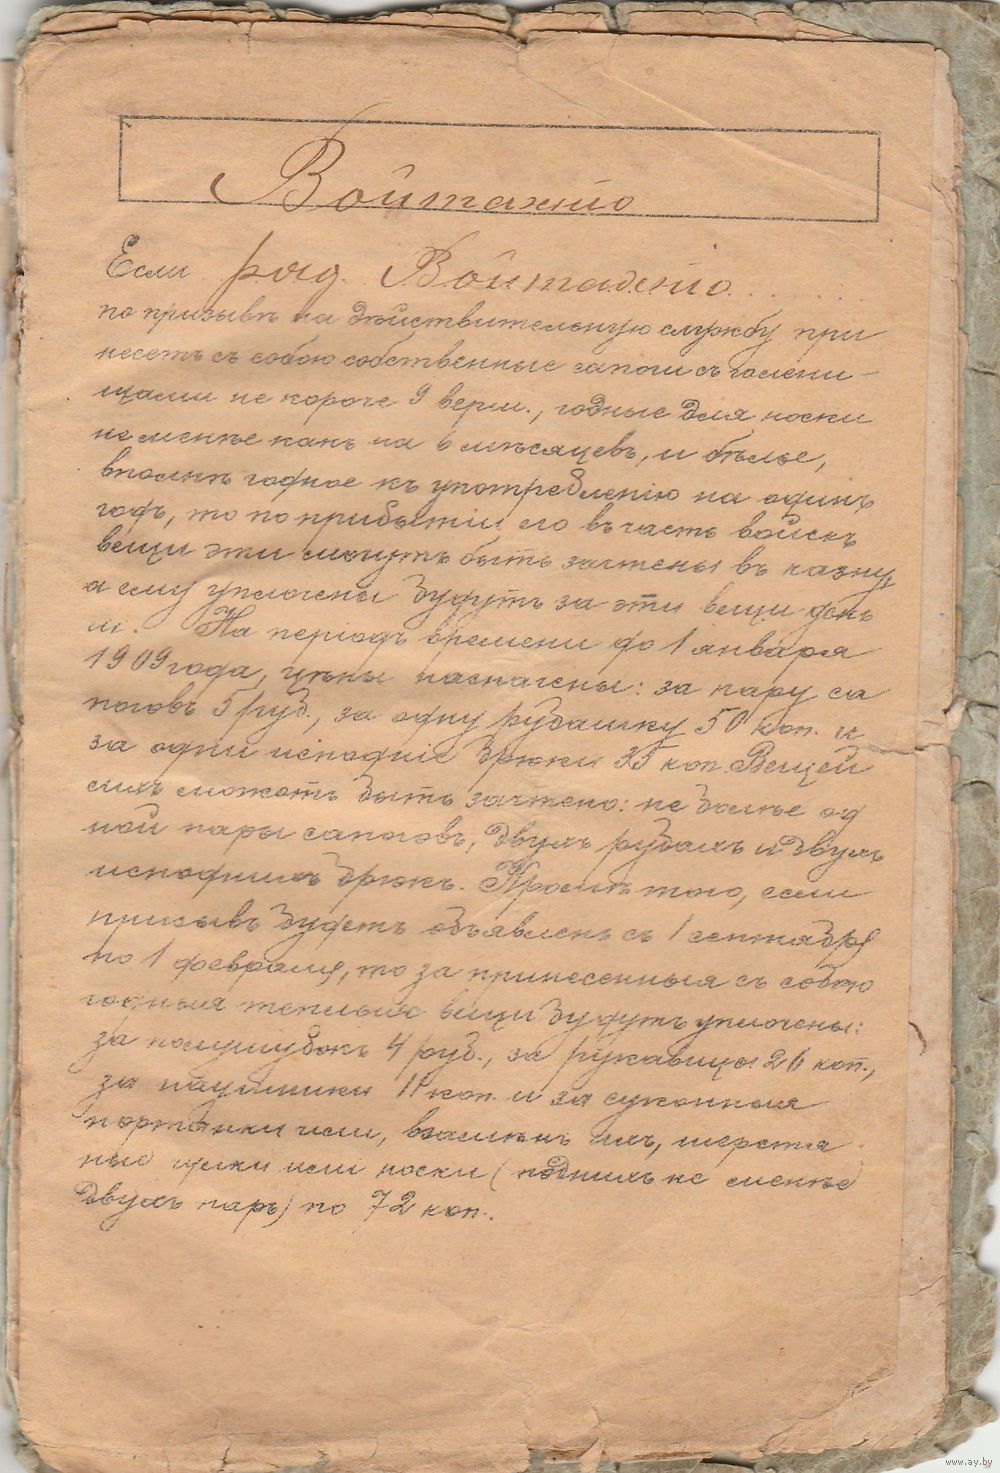 Если ряд.
по призывѣ на дѣйствительную службу при
несетъ съ собою собственные сапоги съ голени-
щами не короче 9 верш., годные для носки
не менѣе какъ на 6 мѣсяцевъ, и бѣлье,
вполнѣ годное къ употребленію на одинъ
годъ, то по прибытіи его въ часть войскъ
вещи эти могутъ быть зачтены въ казну
а ему уплочены будутъ за эти вещи день
ги. На періодъ времени до 1 января
1909 года, цѣны назначены: за пару са
поговъ 5 руб., за одну рубашку 50 коп. и
за одни исподніе брюки 35 коп. Вещей
сихъ можетъ быть зачтено: не болѣе од
ной пары сапоговъ, двухъ рубахъ и двухъ
исподнихъ брюкъ. Кромѣ того, если
призывъ будетъ объявленъ съ 1 сентября
по 1 февраля, то за принесенныя съ собою
годныя теплыя вещи будутъ уплочены:
за полушубокъ 4 руб., за рукавицы 26 коп.,
за наушники коп. и за суконныя
портянки или, взамѣнъ ихъ, шерстя
ные чулки или носки (годныхъ не менѣе
двухъ паръ) по 72 коп.
www.ay.by